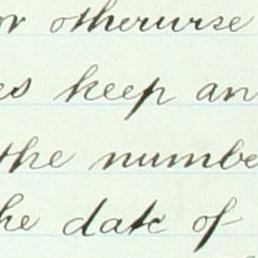 or otherwise
es keep an
the numbe
he date of